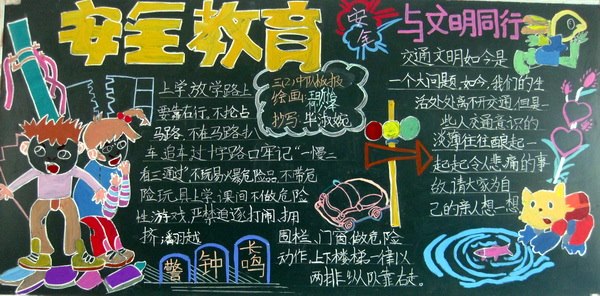 安全教育
三(2)中队板报
绘画:
抄写:
上学放学路上
要靠右行,不抢占
马路,不在马路扒
车追车过十字路口牢记"一慢
二看三通过"不玩易火易危险品,不带危
险玩具上学,课间不做危险
性游戏,严禁追逐打闹、拥
挤、翻越
围栏、门窗做危险
动作,上下楼梯一律以
两排纵队靠右走。
警钟长鸣
安全
与文明同行
交通文明如今是
一个大问题,如今,我们的生
活处处离不开交通,但是一
些人交通意识的
淡薄往往酿起一
起起令人悲痛的事
故,请大家为自
己的亲人想一想